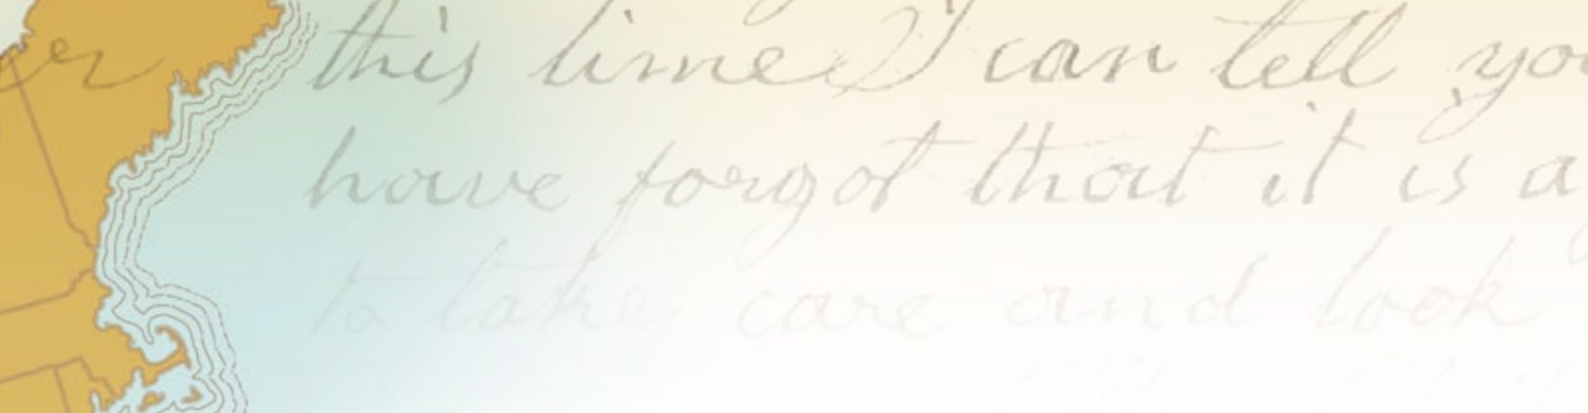 er this time I can tell you
have forgot that it is a
to take care and look